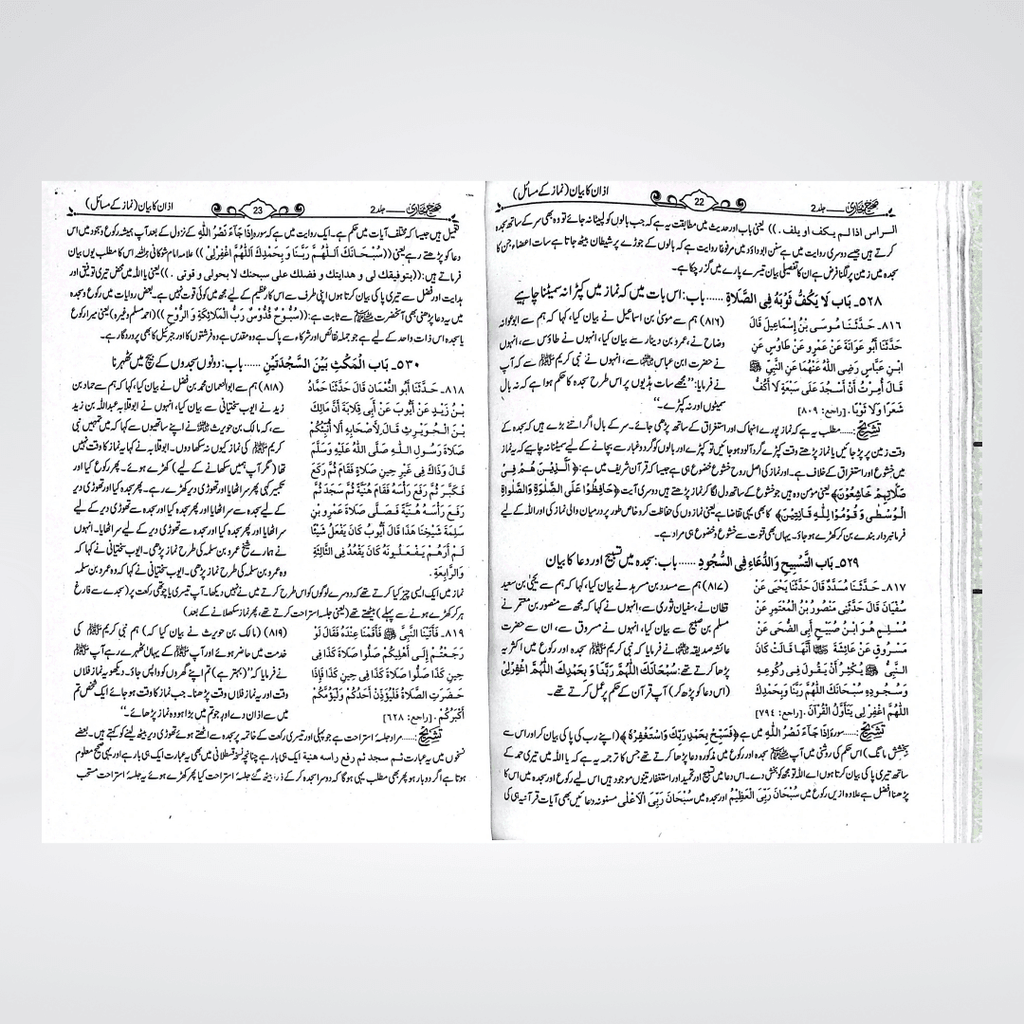 صحیح بخاری جلد 2
22
اذان کا بیان (نماز کے مسائل)
الراس اذا لم یکف او یلف. )) یعنی باب اور حدیث میں مطابقت یہ ہے کہ جب بالوں کو لپیٹا نہ جائے تو وہ بھی سر کے ساتھ سجدہ
کرتے ہیں جیسے دوسری روایت میں ہے سنن ابوداؤد میں مرفوعاً روایت ہے کہ بالوں کے جوڑے پر شیطان بیٹھ جاتا ہے سات اعضاء جن کا
سجدہ میں زمین پر لگنا فرض ہے ان کا تفصیلی بیان تیسرے پارے میں گزر چکا ہے۔
۵۲۸۔ بَاب لَا يَكُفُّ ثَوْبَهُ فِي الصَّلَاةِ ...... باب: اس بات میں کہ نماز میں کپڑا نہ سمیٹنا چاہیے
۸۱۶۔ حَدَّثَنَا مُوسَى بْنُ إِسْمَاعِيلَ قَالَ
حَدَّثَنَا أَبُو عَوَانَةَ عَنْ عَمْرٍو عَنْ طَاوُسٍ عَنِ
ابْنِ عَبَّاسٍ رَضِيَ اللَّهُ عَنْهُمَا عَنِ النَّبِيِّ ﷺ
قَالَ أُمِرْتُ أَنْ أَسْجُدَ عَلَى سَبْعَةٍ لَا أَكُفُّ
شَعَرًا وَلَا ثَوْبًا. [راجع: ۸۰۹]
(۸۱۶) ہم سے موسیٰ بن اسماعیل نے بیان کیا، کہا کہ ہم سے ابوعوانہ
وضاح نے، عمرو بن دینار سے بیان کیا، انہوں نے طاؤس سے، انہوں
نے حضرت ابن عباس سے، انہوں نے نبی کریم ﷺ سے کہ آپ
نے فرمایا: ’’مجھے سات ہڈیوں پر اس طرح سجدہ کا حکم ہوا ہے کہ نہ بال
سمیٹوں اور نہ کپڑے۔‘‘
تشریح: ..... مطلب یہ ہے کہ نماز پورے انہماک اور استغراق کے ساتھ پڑھی جائے۔ سر کے بال اگر اتنے بڑے ہیں کہ سجدہ کے
وقت زمین پر پڑ جائیں یا نماز پڑھتے وقت کپڑے گرد آلود ہو جائیں تو کپڑے اور بالوں کو گرد و غبار سے بچانے کے لیے سمیٹنا نہ چاہیے کہ یہ نماز
میں خشوع اور استغراق کے خلاف ہے۔ اور نماز کی اصل روح خشوع خضوع ہی ہے جیسا کہ قرآن شریف میں ہے: ﴿الَّذِينَ هُمْ فِي
صَلَاتِهِمْ خَاشِعُونَ﴾ یعنی مومن وہ ہیں جو خشوع کے ساتھ دل لگا کر نماز پڑھتے ہیں دوسری آیت ﴿حَافِظُوا عَلَى الصَّلَوٰةِ وَالصَّلَوٰةِ
الْوُسْطَى وَقُومُوا لِلَّهِ قَانِتِينَ﴾ کا بھی یہی تقاضا ہے یعنی نمازوں کی حفاظت کرو خاص طور پر درمیان والی نماز کی اور اللہ کے لیے
فرمانبردار بندے بن کر کھڑے ہو جاؤ۔ یہاں بھی قنوت سے خشوع و خضوع ہی مراد ہے۔
۵۲۹۔ بَاب التَّسْبِيحِ وَالدُّعَاءِ فِي السُّجُودِ ...... باب: سجدہ میں تسبیح اور دعا کا بیان
۸۱۷۔ حَدَّثَنَا مُسَدَّدٌ قَالَ حَدَّثَنَا يَحْيَى عَنْ
سُفْيَانَ قَالَ حَدَّثَنِي مَنْصُورُ بْنُ الْمُعْتَمِرِ عَنْ
مُسْلِمٍ هُوَ ابْنُ صُبَيْحٍ أَبِي الضُّحَى عَنْ
مَسْرُوقٍ عَنْ عَائِشَةَ أَنَّهَا قَالَتْ كَانَ
النَّبِيُّ ﷺ يُكْثِرُ أَنْ يَقُولَ فِي رُكُوعِهِ
وَسُجُودِهِ سُبْحَانَكَ اللَّهُمَّ رَبَّنَا وَبِحَمْدِكَ
اللَّهُمَّ اغْفِرْ لِي يَتَأَوَّلُ الْقُرْآنَ. [راجع: ۷۹۴]
(۸۱۷) ہم سے مسدد بن مسرہد نے بیان کیا، کہا کہ ہم سے یحییٰ بن سعید
قطان نے، سفیان ثوری سے، انہوں نے کہا کہ مجھ سے منصور بن معتمر نے
مسلم بن صبیح سے بیان کیا، انہوں نے مسروق سے، ان سے حضرت
عائشہ صدیقہ نے فرمایا کہ نبی کریم ﷺ سجدہ اور رکوع میں اکثر یہ
پڑھا کرتے تھے: سُبْحَانَكَ اللَّهُمَّ رَبَّنَا وَبِحَمْدِكَ اللَّهُمَّ اغْفِرْ لِي
(اس دعا کو پڑھ کر) آپ قرآن کے حکم پر عمل کرتے تھے۔
تشریح: ..... سورۂ اِذَا جَآءَ نَصْرُ اللهِ میں ہے ﴿فَسَبِّحْ بِحَمْدِ رَبِّكَ وَاسْتَغْفِرْهُ﴾ (اپنے رب کی پاکی بیان کر اور اس سے
بخشش مانگ) اس حکم کی روشنی میں آپ ﷺ سجدہ اور رکوع میں مذکورہ دعا پڑھا کرتے تھے جس کا ترجمہ یہ ہے کہ یا اللہ میں تیری حمد کے
ساتھ تیری پاکی بیان کرتا ہوں اے اللہ تو مجھ کو بخش دے۔ اس دعا میں تسبیح اور تحمید اور استغفار تینوں موجود ہیں اس لیے رکوع اور سجدہ میں اس کا
پڑھنا افضل ہے علاوہ ازیں رکوع میں سُبْحَانَ رَبِّيَ الْعَظِيْمُ اور سجدہ میں سُبْحَانَ رَبِّيَ الْاَعْلٰى مسنونہ دعائیں بھی آیات قرآنیہ ہی کی
صحیح بخاری جلد 2
23
اذان کا بیان (نماز کے مسائل)
تعمیل ہیں جیسا کہ مختلف آیات میں حکم ہے۔ ایک روایت میں ہے کہ سورہ اِذَا جَآءَ نَصْرُ اللهِ کے نزول کے بعد آپ ہمیشہ رکوع و سجود میں اس
دعا کو پڑھتے رہے یعنی ((سُبْحَانَكَ اللَّهُمَّ رَبَّنَا وَبِحَمْدِكَ اللَّهُمَّ اغْفِرْلِيْ)) علامہ امام شوکانی اس کا مطلب یوں بیان
فرماتے ہیں: ((بتوفيقك لى و هدايتك و فضلك على سبحتك لا بحولى و قوتى.)) یعنی یا اللہ میں محض تیری توفیق اور
ہدایت اور فضل سے تیری پاکی بیان کرتا ہوں اپنی طرف سے اس کار عظیم کے لیے مجھ میں کوئی قوت نہیں ہے۔ بعض روایات میں رکوع و سجدہ
میں یہ دعا پڑھنی بھی آنحضرت ﷺ سے ثابت ہے: ((سُبُّوْحٌ قُدُّوْسٌ رَبُّ الْمَلَائِكَةِ وَ الرُّوْحِ)) (احمد مسلم وغیرہ) یعنی میرا رکوع
یا سجدہ اس ذات واحد کے لیے ہے جو جملہ نقائص اور شرکاء سے پاک ہے وہ مقدس ہے وہ فرشتوں کا اور جبرئیل کا بھی پروردگار ہے۔
۵۳۰۔ بَاب الْمَكْثِ بَيْنَ السَّجْدَتَيْنِ ...... باب: دونوں سجدوں کے بیچ میں ٹھہرنا
۸۱۸۔ حَدَّثَنَا أَبُو النُّعْمَانِ قَالَ حَدَّثَنَا حَمَّادُ
بْنُ زَيْدٍ عَنْ أَيُّوبَ عَنْ أَبِي قِلَابَةَ أَنَّ مَالِكَ
بْنَ الْحُوَيْرِثِ قَالَ لِأَصْحَابِهِ أَلَا أُنَبِّئُكُمْ
صَلَاةَ رَسُولِ اللَّهِ صَلَّى اللَّهُ عَلَيْهِ وَسَلَّمَ
قَالَ وَذَاكَ فِي غَيْرِ حِينِ صَلَاةٍ فَقَامَ ثُمَّ رَكَعَ
فَكَبَّرَ ثُمَّ رَفَعَ رَأْسَهُ فَقَامَ هُنَيَّةً ثُمَّ سَجَدَ ثُمَّ
رَفَعَ رَأْسَهُ هُنَيَّةً فَصَلَّى صَلَاةَ عَمْرِو بْنِ
سَلِمَةَ شَيْخِنَا هَذَا قَالَ أَيُّوبُ كَانَ يَفْعَلُ شَيْئًا
لَمْ أَرَهُمْ يَفْعَلُونَهُ كَانَ يَقْعُدُ فِي الثَّالِثَةِ
وَالرَّابِعَةِ.
(۸۱۸) ہم سے ابوالنعمان محمد بن فضل نے بیان کیا، کہا کہ ہم سے حماد بن
زید نے ایوب سختیانی سے بیان کیا، انہوں نے ابوقلابہ عبداللہ بن زید
سے، کہ مالک بن حویرث نے اپنے ساتھیوں سے کہا کہ میں تمہیں نبی
کریم ﷺ کی نماز کیوں نہ سکھا دوں۔ ابوقلابہ نے کہا یہ نماز کا وقت نہیں
تھا (مگر آپ ہمیں سکھانے کے لیے) کھڑے ہوئے۔ پھر رکوع کیا اور
تکبیر کہی پھر سر اٹھایا اور تھوڑی دیر کھڑے رہے۔ پھر سجدہ کیا اور تھوڑی دیر
کے لیے سجدہ سے سر اٹھایا اور پھر سجدہ کیا اور سجدہ سے تھوڑی دیر کے لیے
سر اٹھایا اور پھر سجدہ کیا اور سجدہ سے تھوڑی دیر کے لیے سر اٹھایا۔ انہوں
نے ہمارے شیخ عمرو بن سلمہ کی طرح نماز پڑھی۔ ایوب سختیانی نے کہا کہ
وہ عمرو بن سلمہ کی طرح نماز پڑھی۔ ایوب سختیانی نے کہا کہ وہ عمرو بن سلمہ
نماز میں ایک ایسی چیز کیا کرتے تھے کہ دوسرے لوگوں کو اس طرح کرتے میں نے نہیں دیکھا۔ آپ تیسری یا چوتھی رکعت پر (سجدہ سے فارغ
ہو کر کھڑے ہونے سے پہلے) بیٹھتے تھے (یعنی جلسۂ استراحت کرتے تھے، پھر نماز سکھلانے کے بعد)
۸۱۹۔ فَأَتَيْنَا النَّبِيَّ ﷺ فَأَقَمْنَا عِنْدَهُ فَقَالَ لَوْ
رَجَعْتُمْ إِلَى أَهْلِيكُمْ صَلُّوا صَلَاةَ كَذَا فِي
حِينِ كَذَا صَلُّوا صَلَاةَ كَذَا فِي حِينِ كَذَا فَإِذَا
حَضَرَتِ الصَّلَاةُ فَلْيُؤَذِّنْ أَحَدُكُمْ وَلْيَؤُمَّكُمْ
أَكْبَرُكُمْ. [راجع: ۶۲۸]
(۸۱۹) (مالک بن حویرث نے بیان کیا کہ) ہم نبی کریم ﷺ کی
خدمت میں حاضر ہوئے اور آپ ﷺ کے یہاں ٹھہرے رہے آپ ﷺ
نے فرمایا کہ ’’(بہتر ہے) تم اپنے گھروں کو واپس جاؤ۔ دیکھو یہ نماز فلاں
وقت اور یہ نماز فلاں وقت پڑھنا۔ جب نماز کا وقت ہو جائے ایک شخص تم
میں سے اذان دے اور جو تم میں بڑا ہو وہ نماز پڑھائے۔‘‘
تشریح: ..... مراد جلسۂ استراحت ہے جو پہلی اور تیسری رکعت کے خاتمہ پر سجدہ سے اٹھتے ہوئے تھوڑی دیر بیٹھ لینے کو کہتے ہیں۔ بعضے
نسخوں میں یہ عبارت ثم سجد ثم رفع راسه هنية ایک ہی بار ہے چنانچہ نسخہ قسطلانی میں بھی یہ عبارت ایک ہی بار ہے اور یہی صحیح معلوم
ہوتا ہے اگر دو بار ہو پھر بھی مطلب یہی ہوگا کہ دوسرا سجدہ کر کے ذرا بیٹھ گئے جلسۂ استراحت کیا پھر کھڑے ہوئے یہ جلسۂ استراحت مستحب